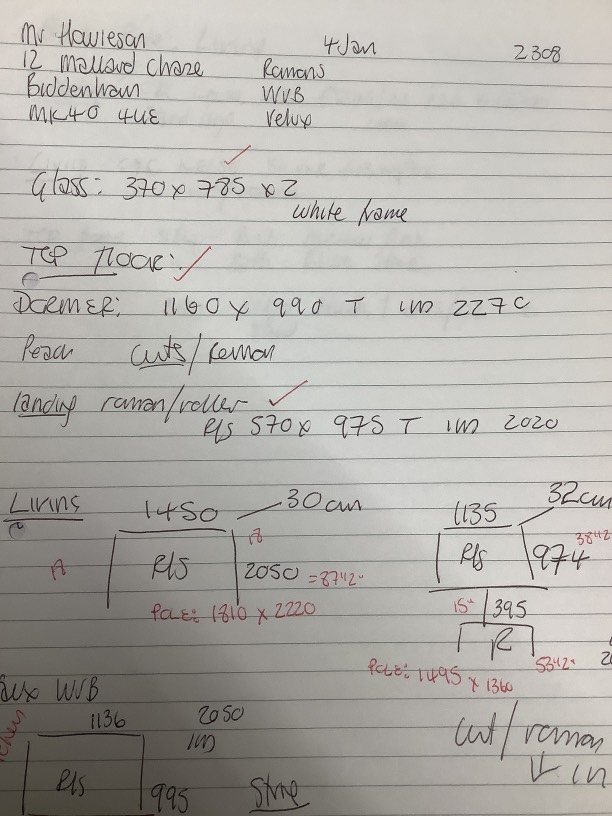 Mr Howieson 4 Jan 2308
12 Mallard Chase Romans
Biddenham WVB
MK40 4UE Velux
Glass: 370 x 785 x 2
White frame
TOP FLOOR:
DORMER: 1160 x 990 T in 2270
Peach cuts/Roman
landing roman/roller
R/S 570 x 975 T in 2020
Living 1450 30cm 1135 32cm
R/S R/S 974 3842
A 2050 = 8742
POLE: 1810 x 2220 15" 395
R 5342
POLE: 1495 x 1360
WVB
1136 2050
in
R/S 995 Stne
cut/roman
in